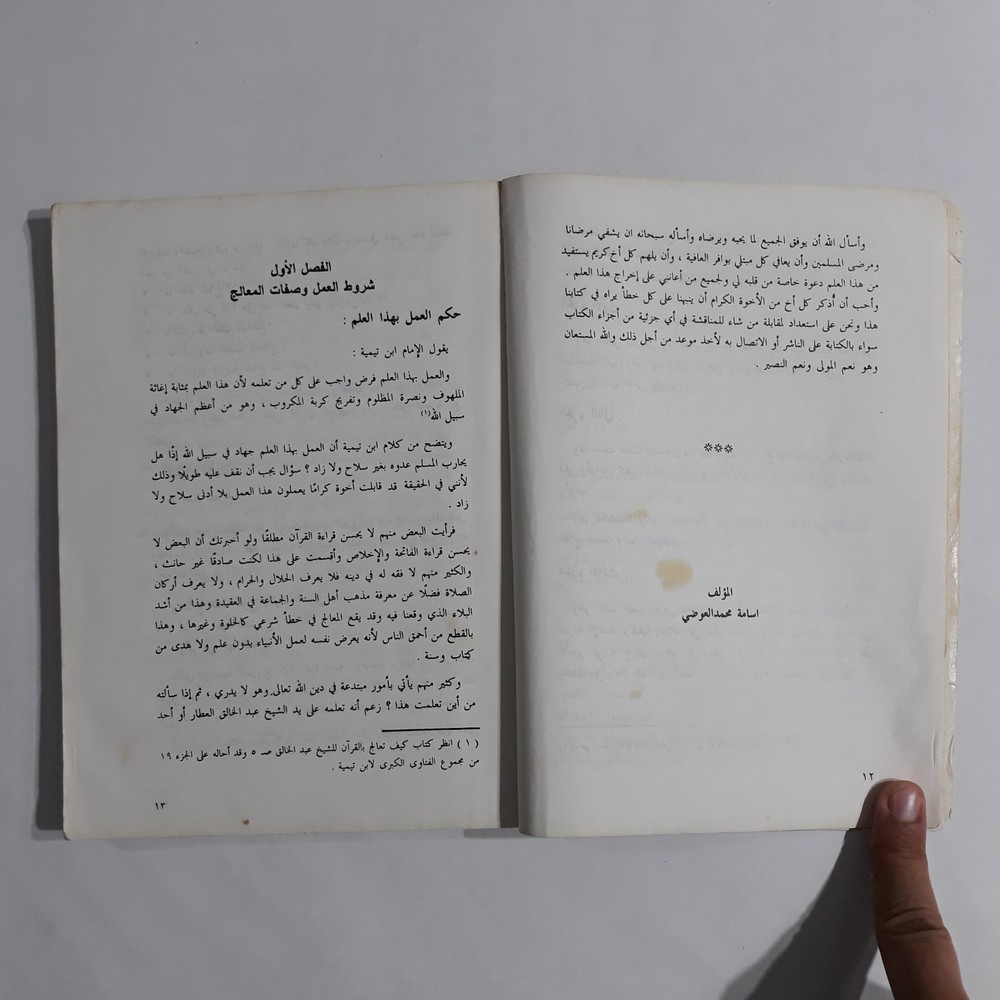 وأسأل الله أن يوفق الجميع لما يحبه ويرضاه وأسأله سبحانه ان يشفي مرضانا
ومرضى المسلمين وأن يعافي كل مبتلي بوافر العافية ، وأن يلهم كل أخ كريم يستفيد
من هذا العلم دعوة خاصة من قلبه لي ولجميع من أعانني على إخراج هذا العلم .
وأحب أن أذكر كل أخ من الأخوة الكرام أن ينبهنا على كل خطأ يراه في كتابنا
هذا ونحن على استعداد لمقابلة من شاء للمناقشة في أي جزئية من أجزاء الكتاب
سواء بالكتابة على الناشر أو الاتصال به لأخذ موعد من أجل ذلك والله المستعان
وهو نعم المولى ونعم النصير .
***
المؤلف
اسامة محمد العوضي
١٢
الفصل الأول
شروط العمل وصفات المعالج
حكم العمل بهذا العلم :
يقول الإمام ابن تيمية :
والعمل بهذا العلم فرض واجب على كل من تعلمه لأن هذا العلم بمثابة إغاثة
الملهوف ونصرة المظلوم وتفريج كربة المكروب ، وهو من أعظم الجهاد في
سبيل الله(١)
ويتضح من كلام ابن تيمية أن العمل بهذا العلم جهاد في سبيل الله إذًا هل
يحارب المسلم عدوه بغير سلاح ولا زاد ؟ سؤال يجب أن نقف عليه طويلًا وذلك
لأنني في الحقيقة قد قابلت أخوة كرامًا يعملون هذا العمل بلا أدنى سلاح ولا
زاد .
فرأيت البعض منهم لا يحسن قراءة القرآن مطلقًا ولو أخبرتك أن البعض لا
يحسن قراءة الفاتحة والإخلاص وأقسمت على هذا لكنت صادقًا غير حانث ،
والكثير منهم لا فقه له في دينه فلا يعرف الحلال والحرام ، ولا يعرف أركان
الصلاة فضلًا عن معرفة مذهب أهل السنة والجماعة في العقيدة وهذا من أشد
البلاء الذي وقعنا فيه وقد يقع المعالج في خطأ شرعي كالخلوة وغيرها ، وهذا
بالقطع من أحمق الناس لأنه يعرض نفسه لعمل الأنبياء بدون علم ولا هدى من
كتاب وسنة .
وكثير منهم يأتي بأمور مبتدعة في دين الله تعالى وهو لا يدري ، ثم إذا سألته
من أين تعلمت هذا ؟ زعم أنه تعلمه على يد الشيخ عبد الخالق العطار أو أحد
( ١ ) انظر كتاب كيف تعالج بالقرآن للشيخ عبد الخالق صـ ٥ وقد أحاله على الجزء ١٩
من مجموع الفتاوى الكبرى لابن تيمية .
١٣